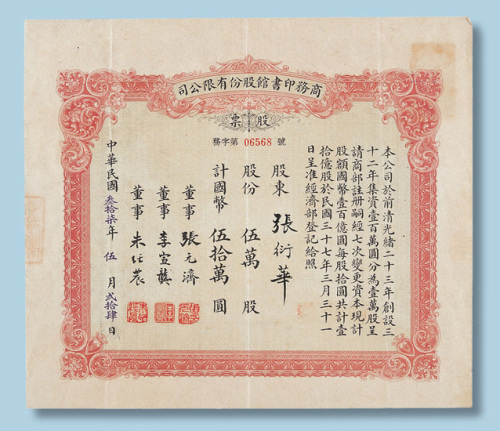 商務印書館股份有限公司
股票
務字第 06568 號
本公司於前清光緒二十三年創設三
十二年集資壹百萬圓分為壹萬股呈
請商部註册嗣經七次變更資本現計
股額國幣壹百億圓每股拾圓共計壹
拾億股於民國三十七年三月三十一
日呈准經濟部登記給照
股東 張衍華
股份 伍萬 股
計國幣 伍拾萬 圓
董事 張元濟
董事 李宣龔
董事 朱經農
中華民國叁拾柒年伍月貳拾肆日